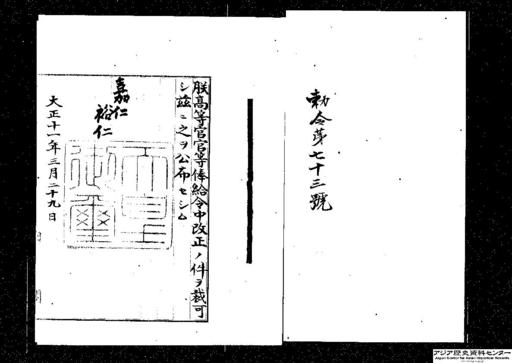 勅令第七十三號
朕高等官官等俸給令中改正ノ件ヲ裁可
シ茲ニ之ヲ公布セシム
嘉仁
裕仁
大正十一年三月二十九日
天皇御璽
アジア歴史資料センター
Japan Center for Asian Historical Records